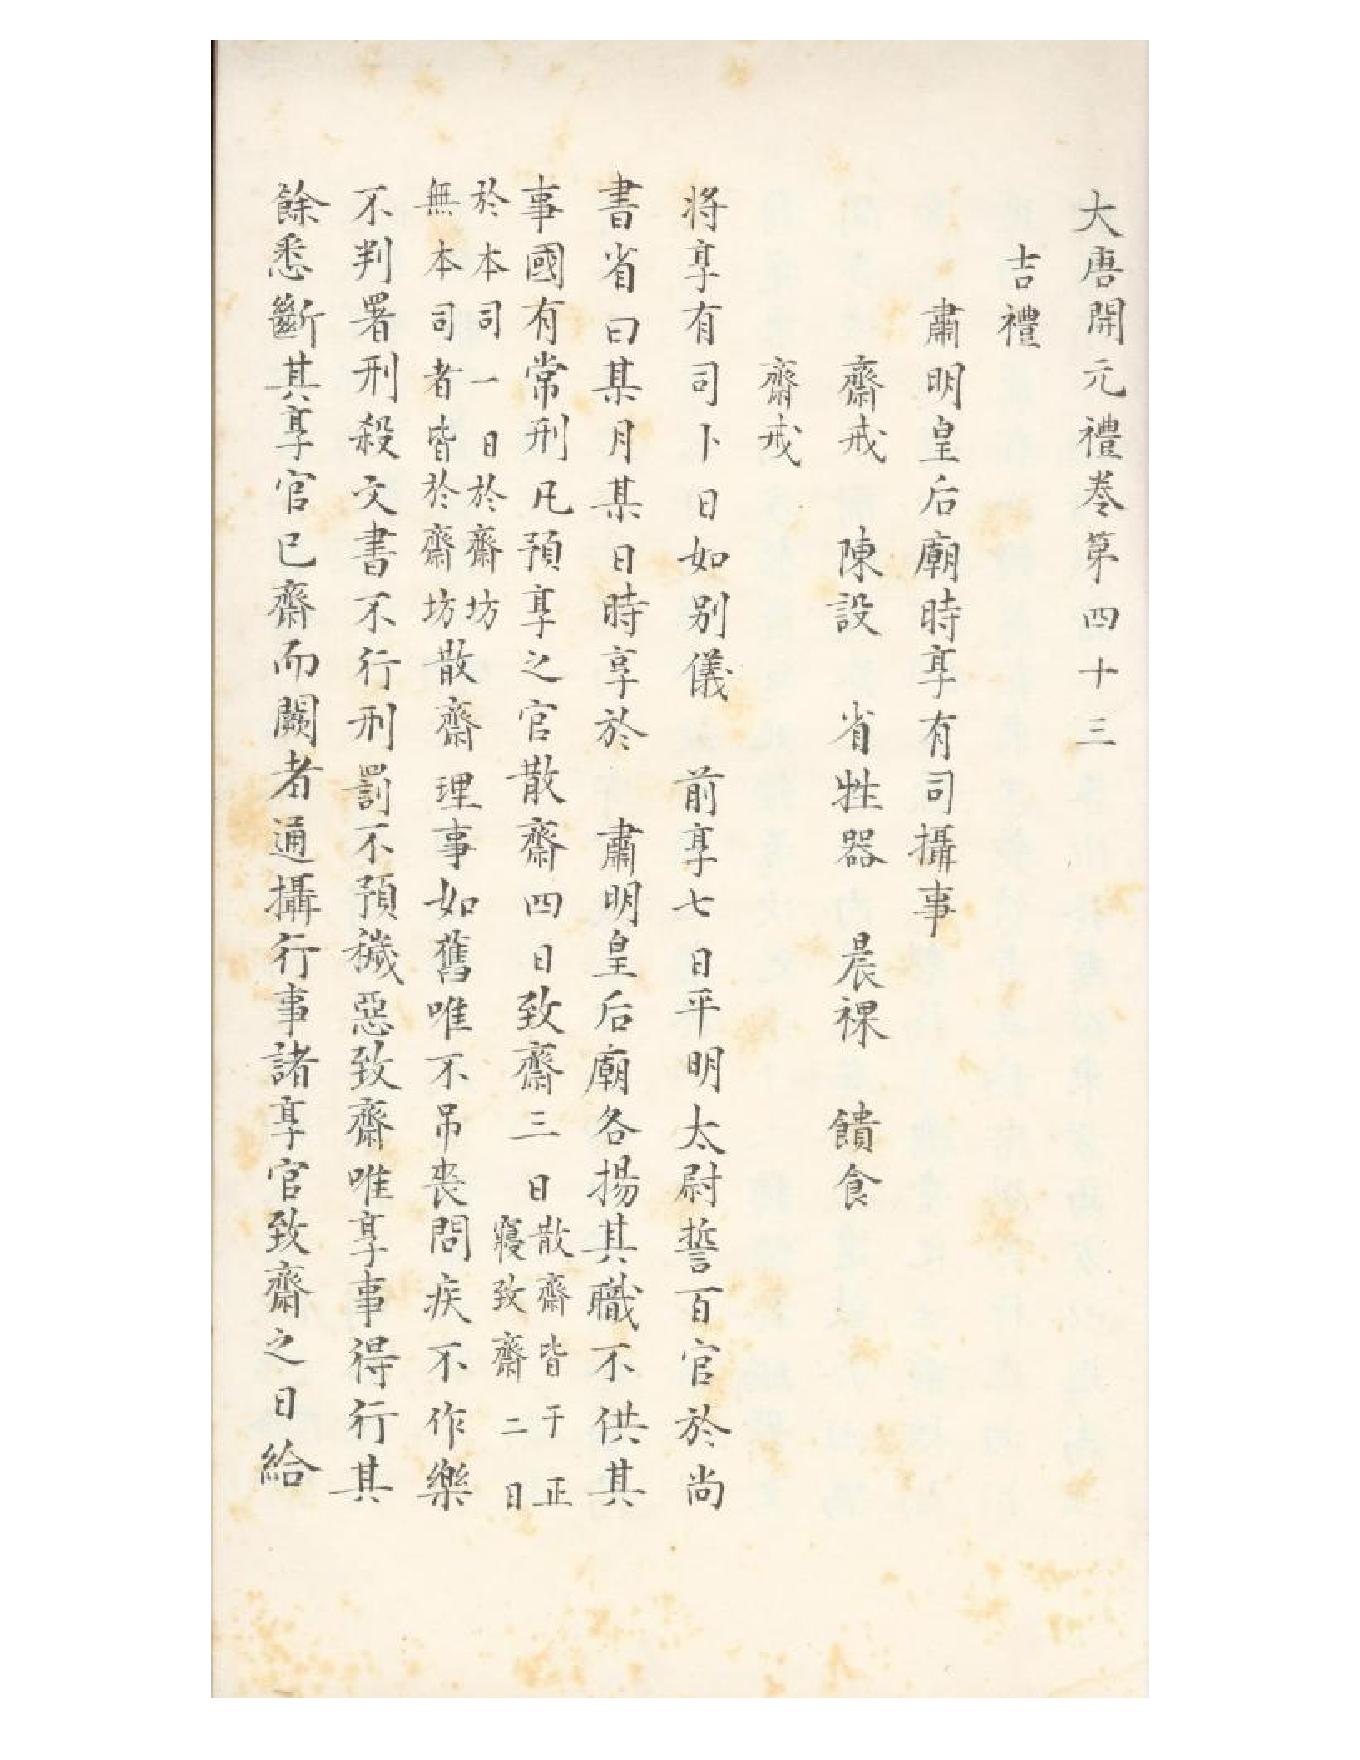 大唐開元禮卷第四十三
吉禮
肅明皇后廟時享有司攝事
齋戒　陳設　省牲器　晨祼　饋食
齋戒
將享有司卜日如别儀　前享七日平明太尉誓百官於尚
書省曰某月某日時享於　肅明皇后廟各揚其職不供其
事國有常刑凡預享之官散齋四日致齋三日散齋皆于正
寢致齋二日
於本司一日於齋坊
無本司者皆於齋坊散齋理事如舊唯不吊喪問疾不作樂
不判署刑殺文書不行刑罰不預穢惡致齋唯享事得行其
餘悉斷其享官已齋而闕者通攝行事諸享官致齋之日給